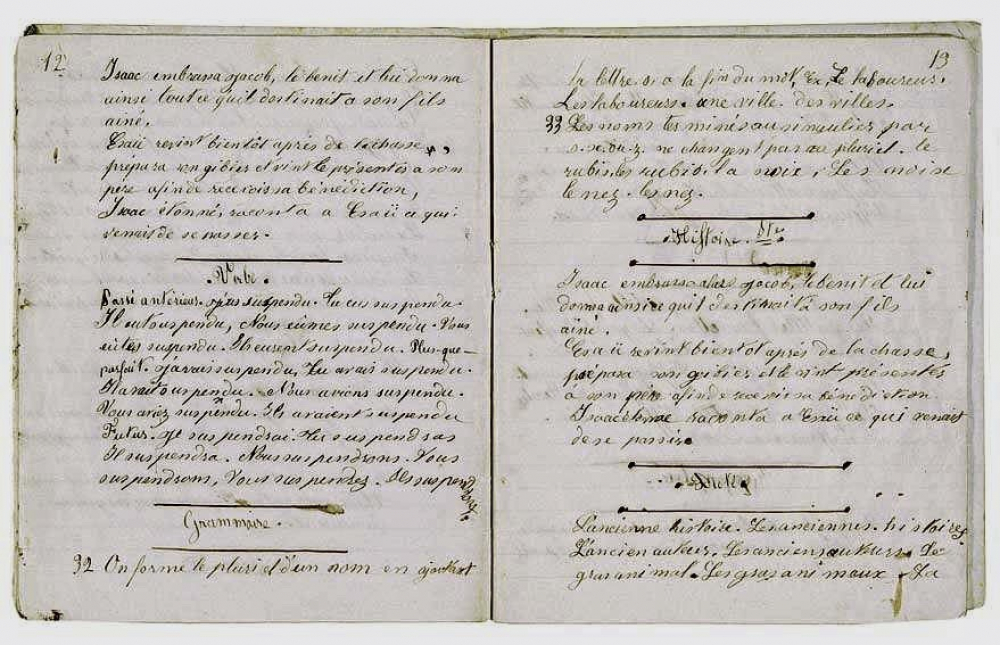 12
Isaac embrassa Jacob, le benit et lui donna
ainsi tout ce quil destinait a son fils
ainé.
Esaü revint bientôt après de la chasse,
prépara son gibier et vint le présenter a son
père afin de recevoir sa bénédiction,
Isaac étonné, raconta a Esaü ce qui
venait de se passer.
Verbe.
Passé antérieur. J'eus suspendu. Tu eus suspendu.
Il eut suspendu, Nous eûmes suspendu. Vous
eûtes suspendu. Ils eurent suspendu. Plus-que-
parfait. J'avais suspendu, Tu avais suspendu.
Il avait suspendu. Nous avions suspendu.
Vous aviez suspendu. Ils avaient suspendu
Futur. Je suspendrai. Tu suspendras
Il suspendra. Nous suspendrons. Vous
suspendrons, Vous suspendrez. Ils suspendront
Grammaire.
32 On forme le pluriel d'un nom en ajoutant
13
la lettre s. a la fin du mot, Ex, Le laboureur.
Les laboureurs. une ville. des villes.
33 Les noms terminés au singulier par
s. x. ou z. ne changent pas au pluriel. le
rubis les rubis la noix, Les noix
le nez. les nez.
Histoire. Ste
Isaac embrassa Jacob, le benit et lui
donna ainsi ce quil destinait à son fils
ainé.
Esaü revint bientôt après de la chasse,
prépara son gibier et le vint présenter
a son père afin de recevoir sa bénédiction.
Isaac étonné raconta a Esaü ce qui venait
de se passer.
L'ancienne histoire. Les anciennes histoires
L'ancien auteur. Les anciens auteurs. Le
gras animal. Les gras animaux. La